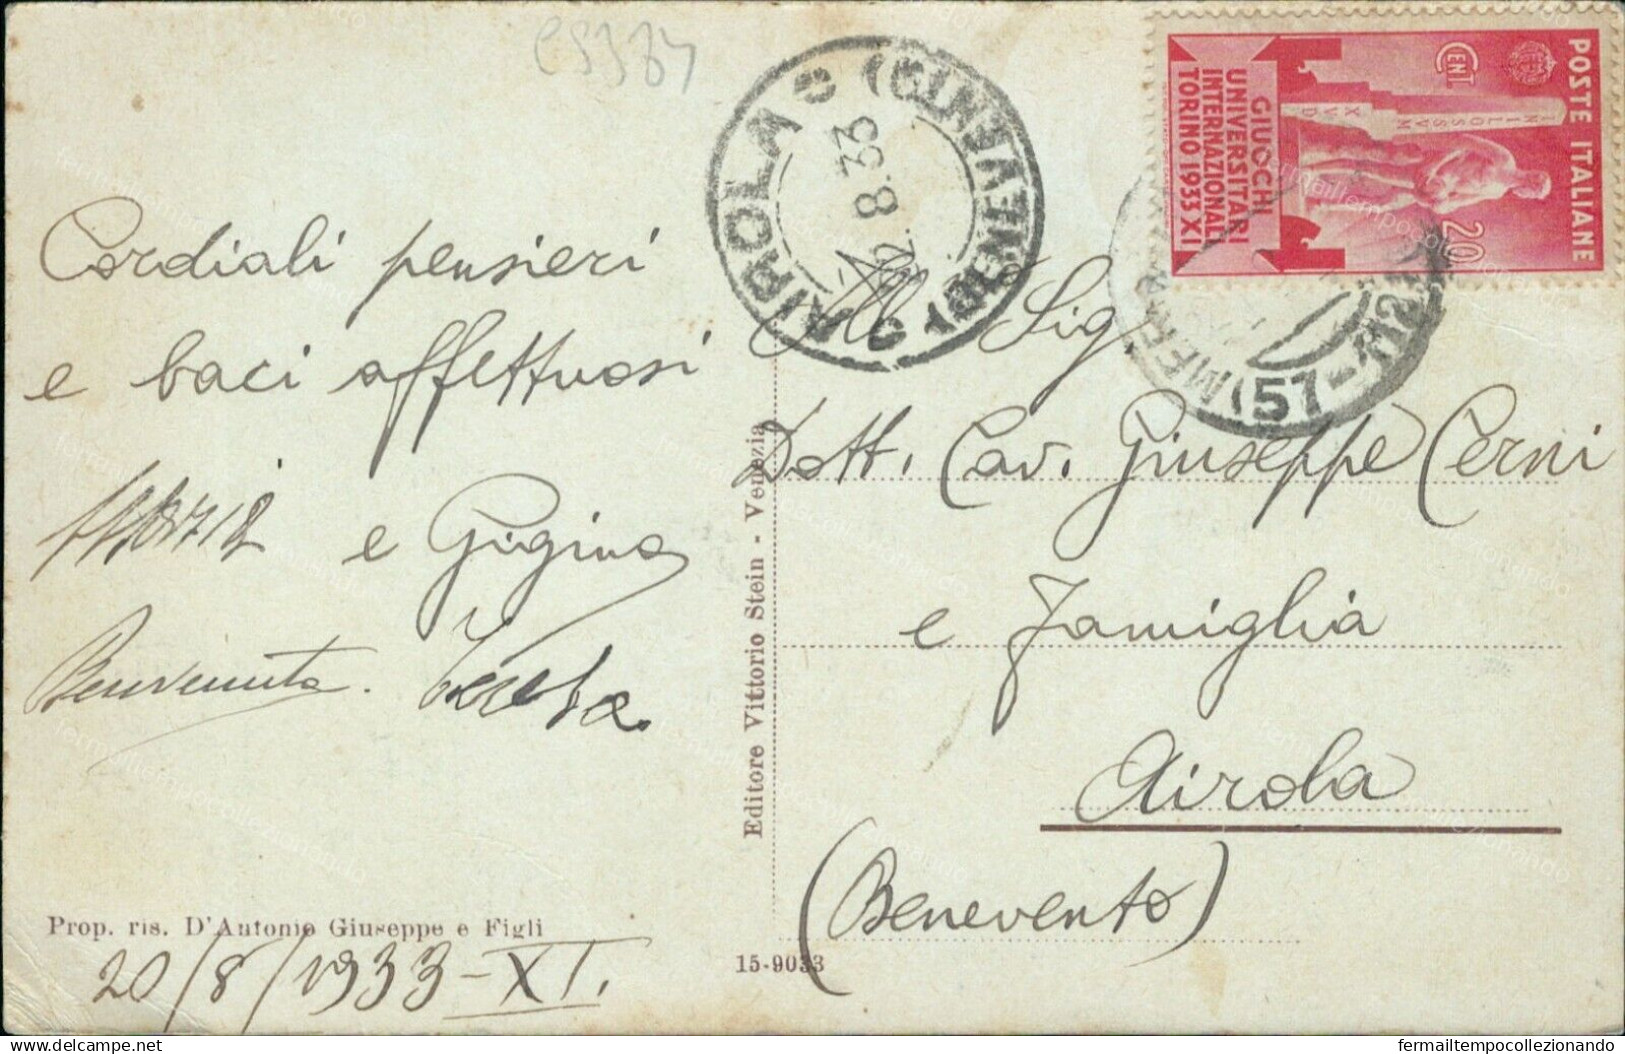 c5384
Cordiali pensieri
e baci affettuosi
e Gigina
Benvenuta. Teresa
Prop. ris. D'Antonio Giuseppe e Figli
20/8/1933-XI.
Editore Vittorio Stein - Venezia
15-9033
AIROLA (BENEVENTO)
8.33
POSTE ITALIANE
CENT 20
GIUOCHI
UNIVERSITARI
INTERNAZIONALI
TORINO 1933 XI
(57-
All Sig.
Dott. Cav. Giuseppe Cerni
e Famiglia
Airola
(Benevento)
fermailtempocollezionando.com
fermailtempocollezionando